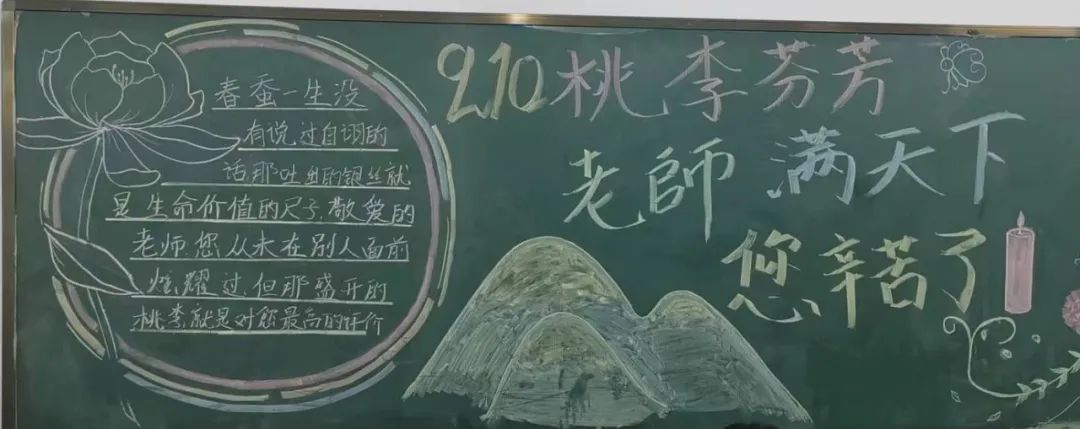 春蚕一生没
有说过自诩的
话,那吐出的银丝就
是生命价值的尺子.敬爱的
老师.您从未在别人面前
炫耀过.但那盛开的
桃李就是对您最高的评价
9.10桃李芬芳
满天下
老師
您辛苦了